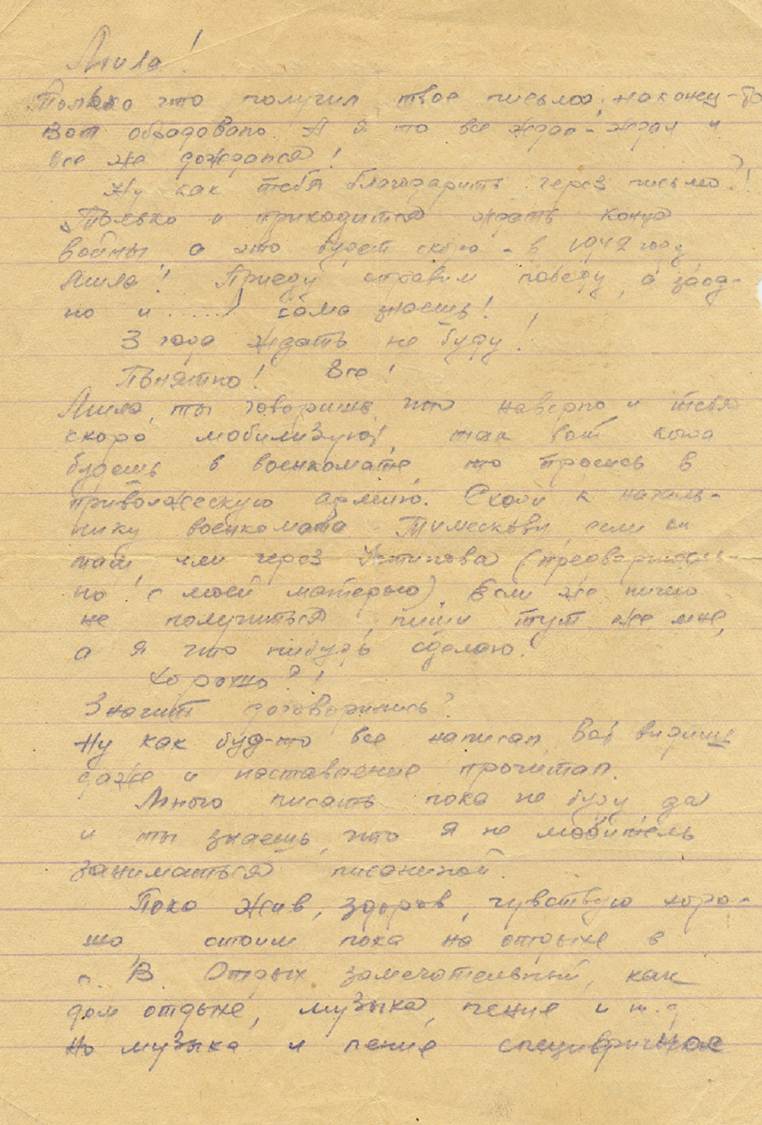 Мила!
Только что получил твое письмо, наконец-то
Вот обрадовало. А я то все ждал-ждал и
все же дождался!
Ну как тебя благодарить через письмо?!
Только и приходится ждать конца
войны а это будет скоро - в 1942 году
Мила! Приеду справим победу, а заод-
но и ..... сама знаешь!
3 года ждать не буду!
Понятно! Все!
Мила, ты говоришь, что наверно и тебя
скоро мобилизуют, так вот когда
будешь в военкомате, то просись в
приволжескую армию. Сходи к началь-
нику военкомата если он
там или через Устинова (предваритель-
но с моей матерью) Если же ничего
не получиться, пиши тут же мне,
а я что нибудь сделаю.
Хорошо?!
Значит договорились?
Ну как буд-то все написал. Вот видишь
даже и наставление прочитал.
Много писать пока не буду да
и ты знаешь, что я не любитель
заниматься писаниной.
Пока жив, здоров, чувствую хоро-
шо стоим пока на отдыхе в
с. В. Отдых замечательный, как
дом отдыха, музыка, пение и т.д.
Но музыка и пение